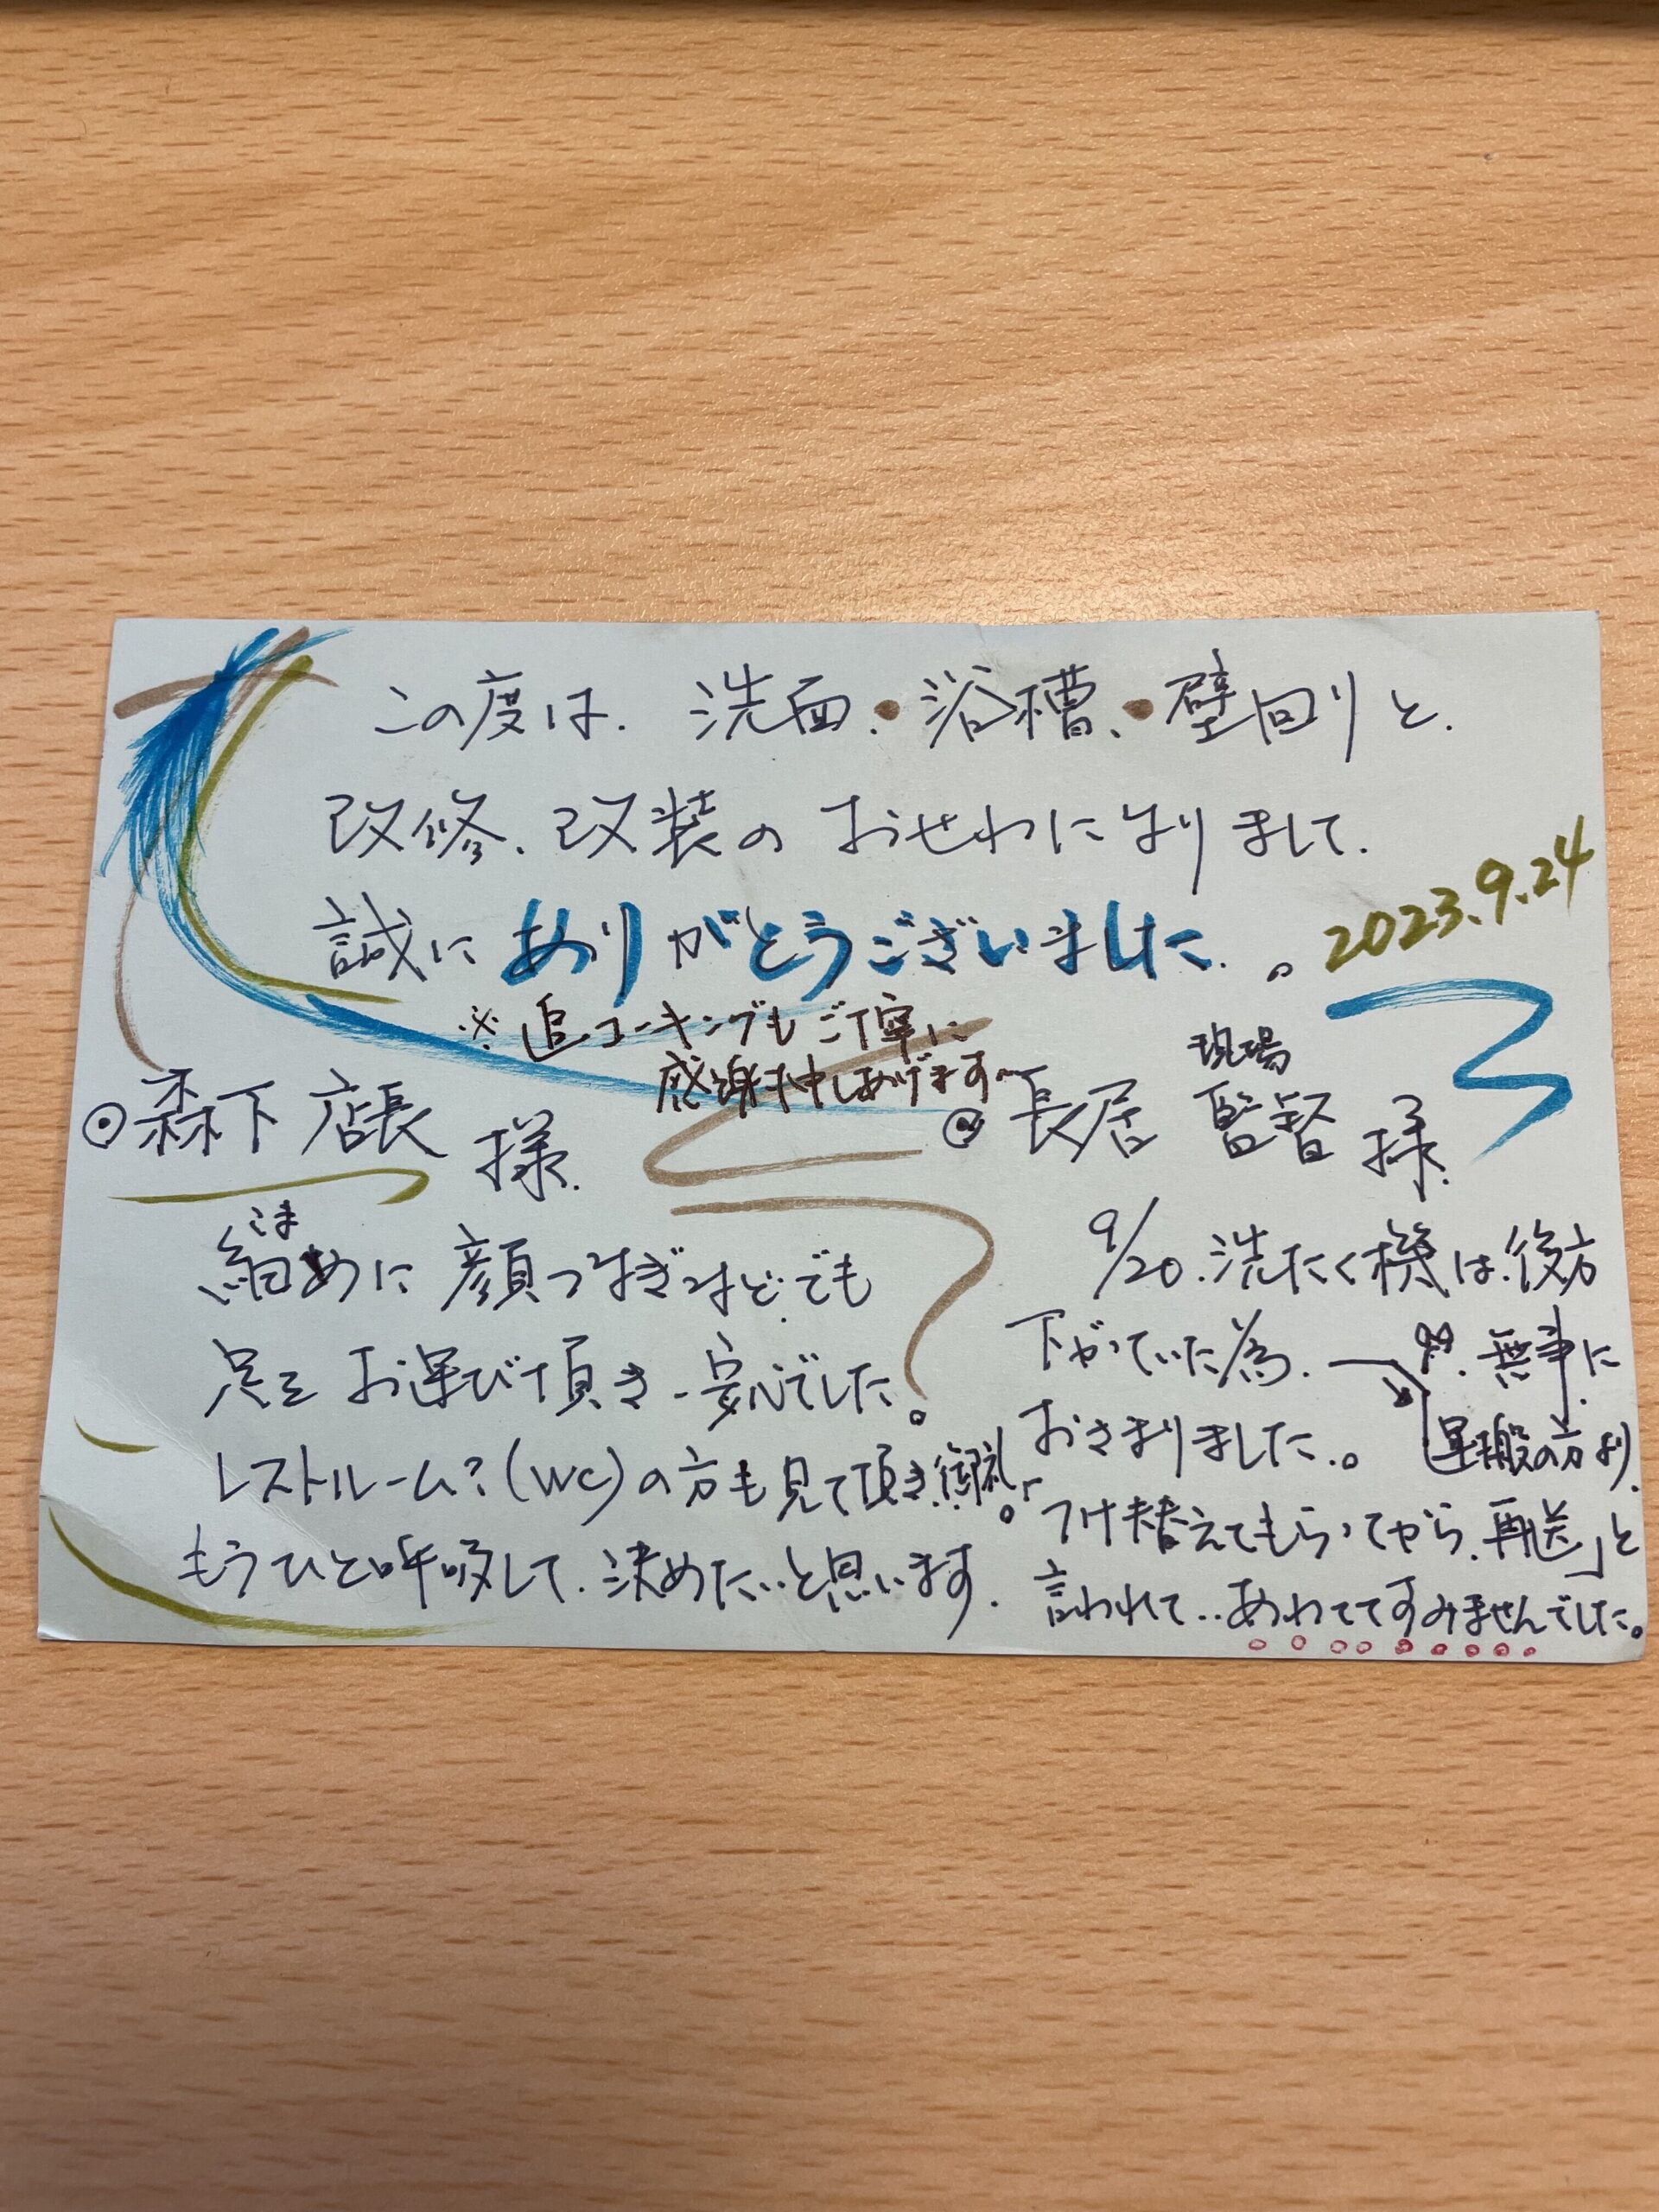 この度は、洗面・浴槽、・壁回りと、
改修、改装のおせわになりまして、
誠にありがとうございました。
2023.9.24
※追コーキングもご丁寧に
感謝申しあげます
⦿森下店長様
こま
細めに顔つなぎなどでも
足をお運び頂き、安心でした。
レストルーム?(WC)の方も見て頂き御礼。
もうひと呼吸して、決めたいと思います.
⦿長居現場監督様
9/20.洗たく機は後方
下がっていた為、→無事に
おさまりました。
運搬の方より、
「つけ替えてもらってから、再送」と
言われて..あわててすみませんでした。